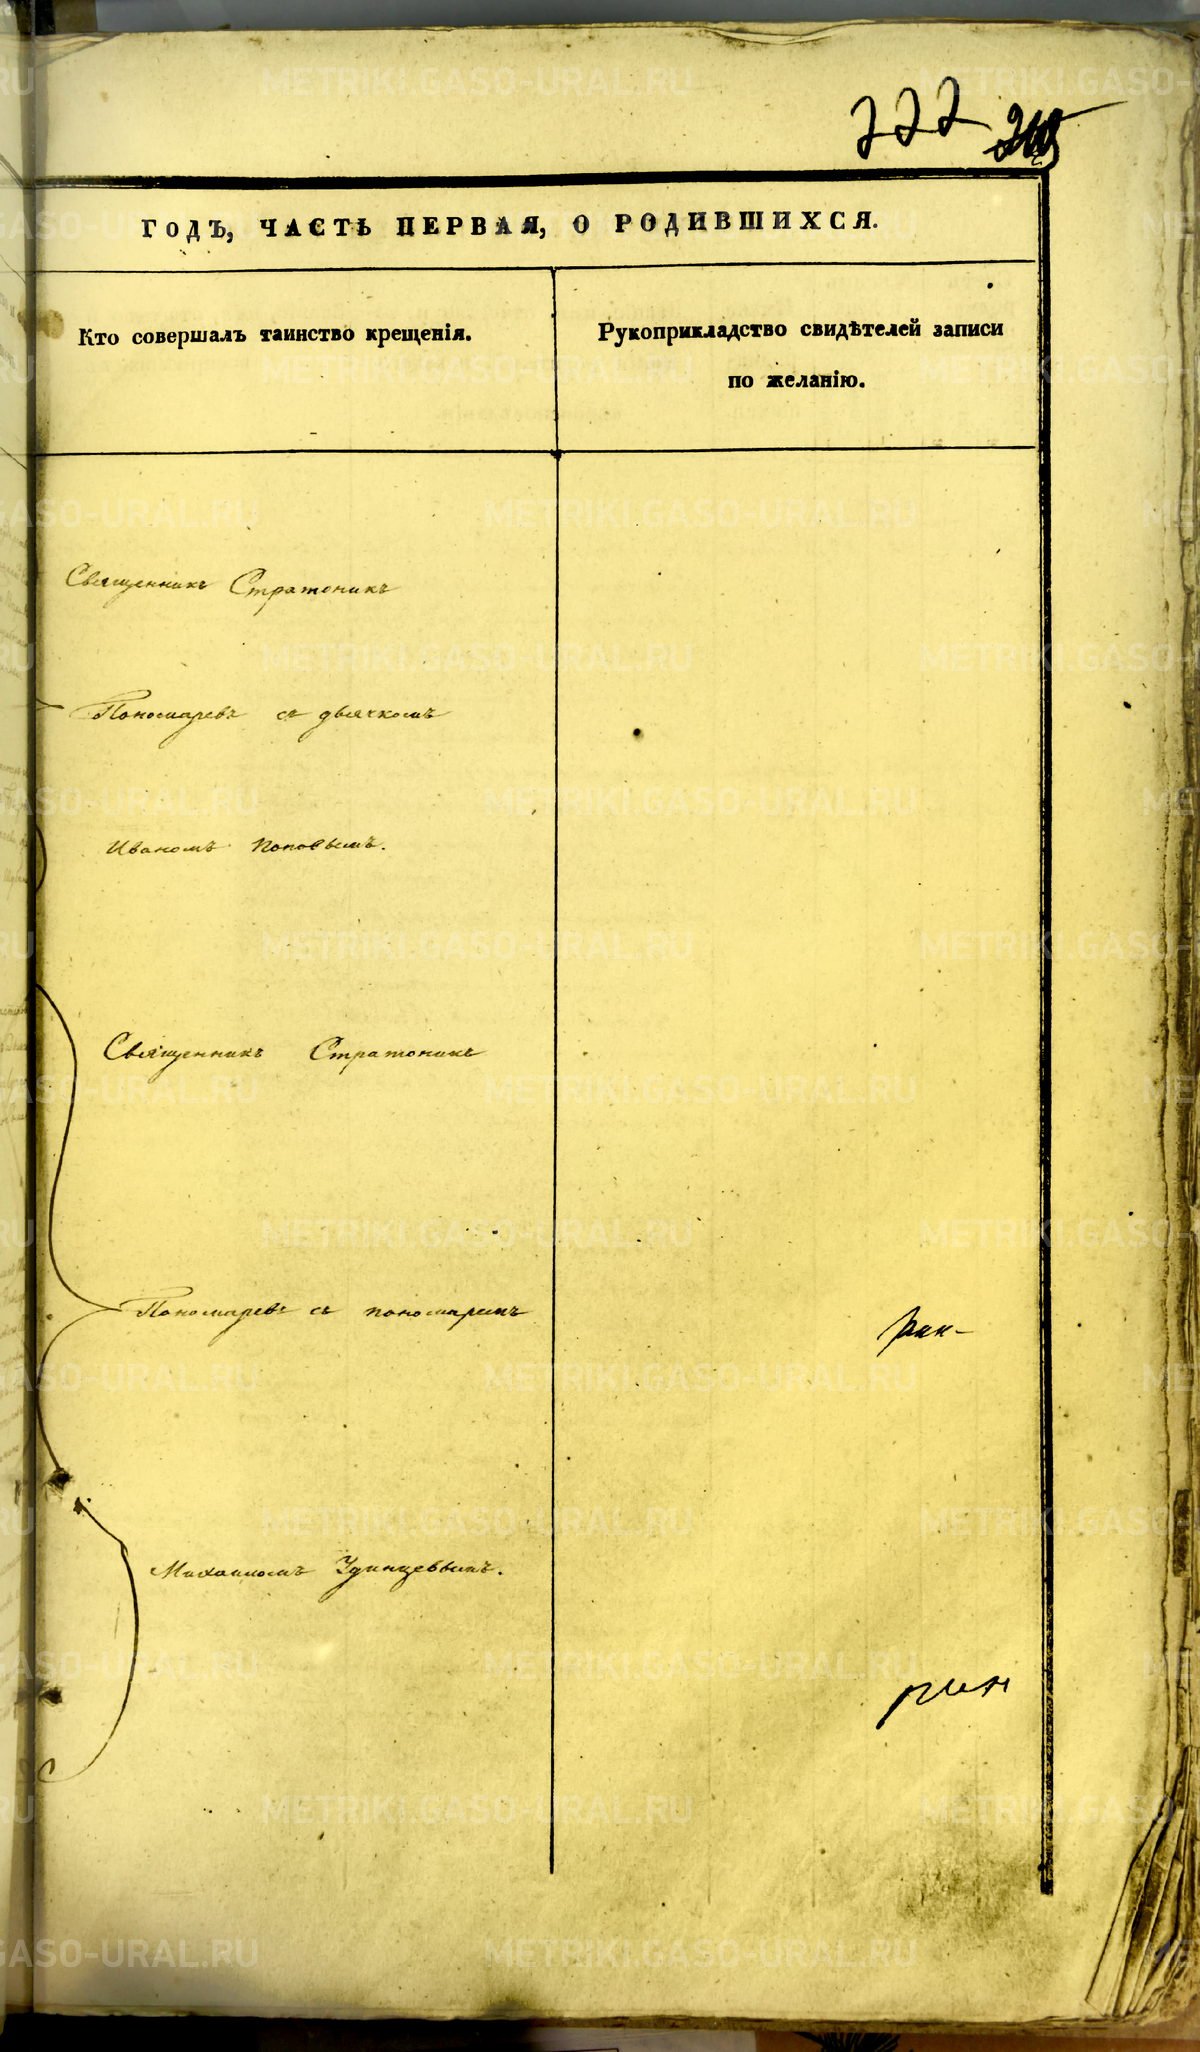 222
ГОДЪ, ЧАСТЬ ПЕРВАЯ, О РОДИВШИХСЯ.
Кто совершалъ таинство крещенія.
Рукоприкладство свидѣтелей записи
по желанію.
Священникъ Стратоникъ
Пономаревъ съ дьячкомъ
Иваномъ Поповымъ.
Священникъ Стратоникъ
Пономаревъ съ пономаремъ
Михаиломъ Удинцевымъ.
METRIKI.GASO-URAL.RU